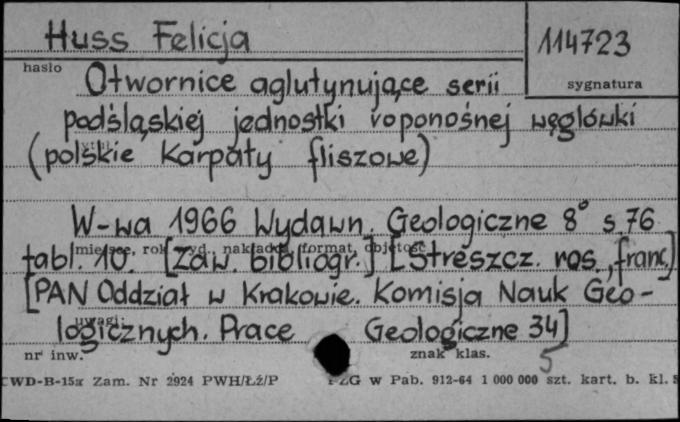 Huss Felicja
114723
hasło
sygnatura
Otwornice aglutynujące serii
podśląskiej jednostki roponośnej węglówki
tytuł
(polskie Karpaty fliszowe)
W-wa 1966 Wydawn. Geologiczne 8° s. 76
miejsce, rok wyd., nakładca, format, objętość
tabl. 10. [Zaw. bibliogr.] [Streszcz. ros., franc.]
[PAN Oddział w Krakowie. Komisja Nauk Geo-
uwagi:
logicznych. Prace Geologiczne 34]
nr inw.
znak klas.
5
CWD-B-15a Zam. Nr 2924 PWH/Łź/P PZG w Pab. 912-64 1 000 000 szt. kart. b. kl. 5